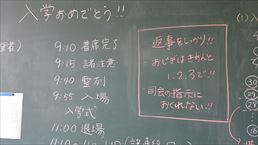 入学おめでとう!!
9:10 着席完了
9:15 諸注意
9:40 整列
9:55 入場
入学式
11:00 退場
返事をしっかり!!
おじぎはきちんと
1.2.3で!!
司会の指示に
おくれない!!
(1)入
30
29
28
16